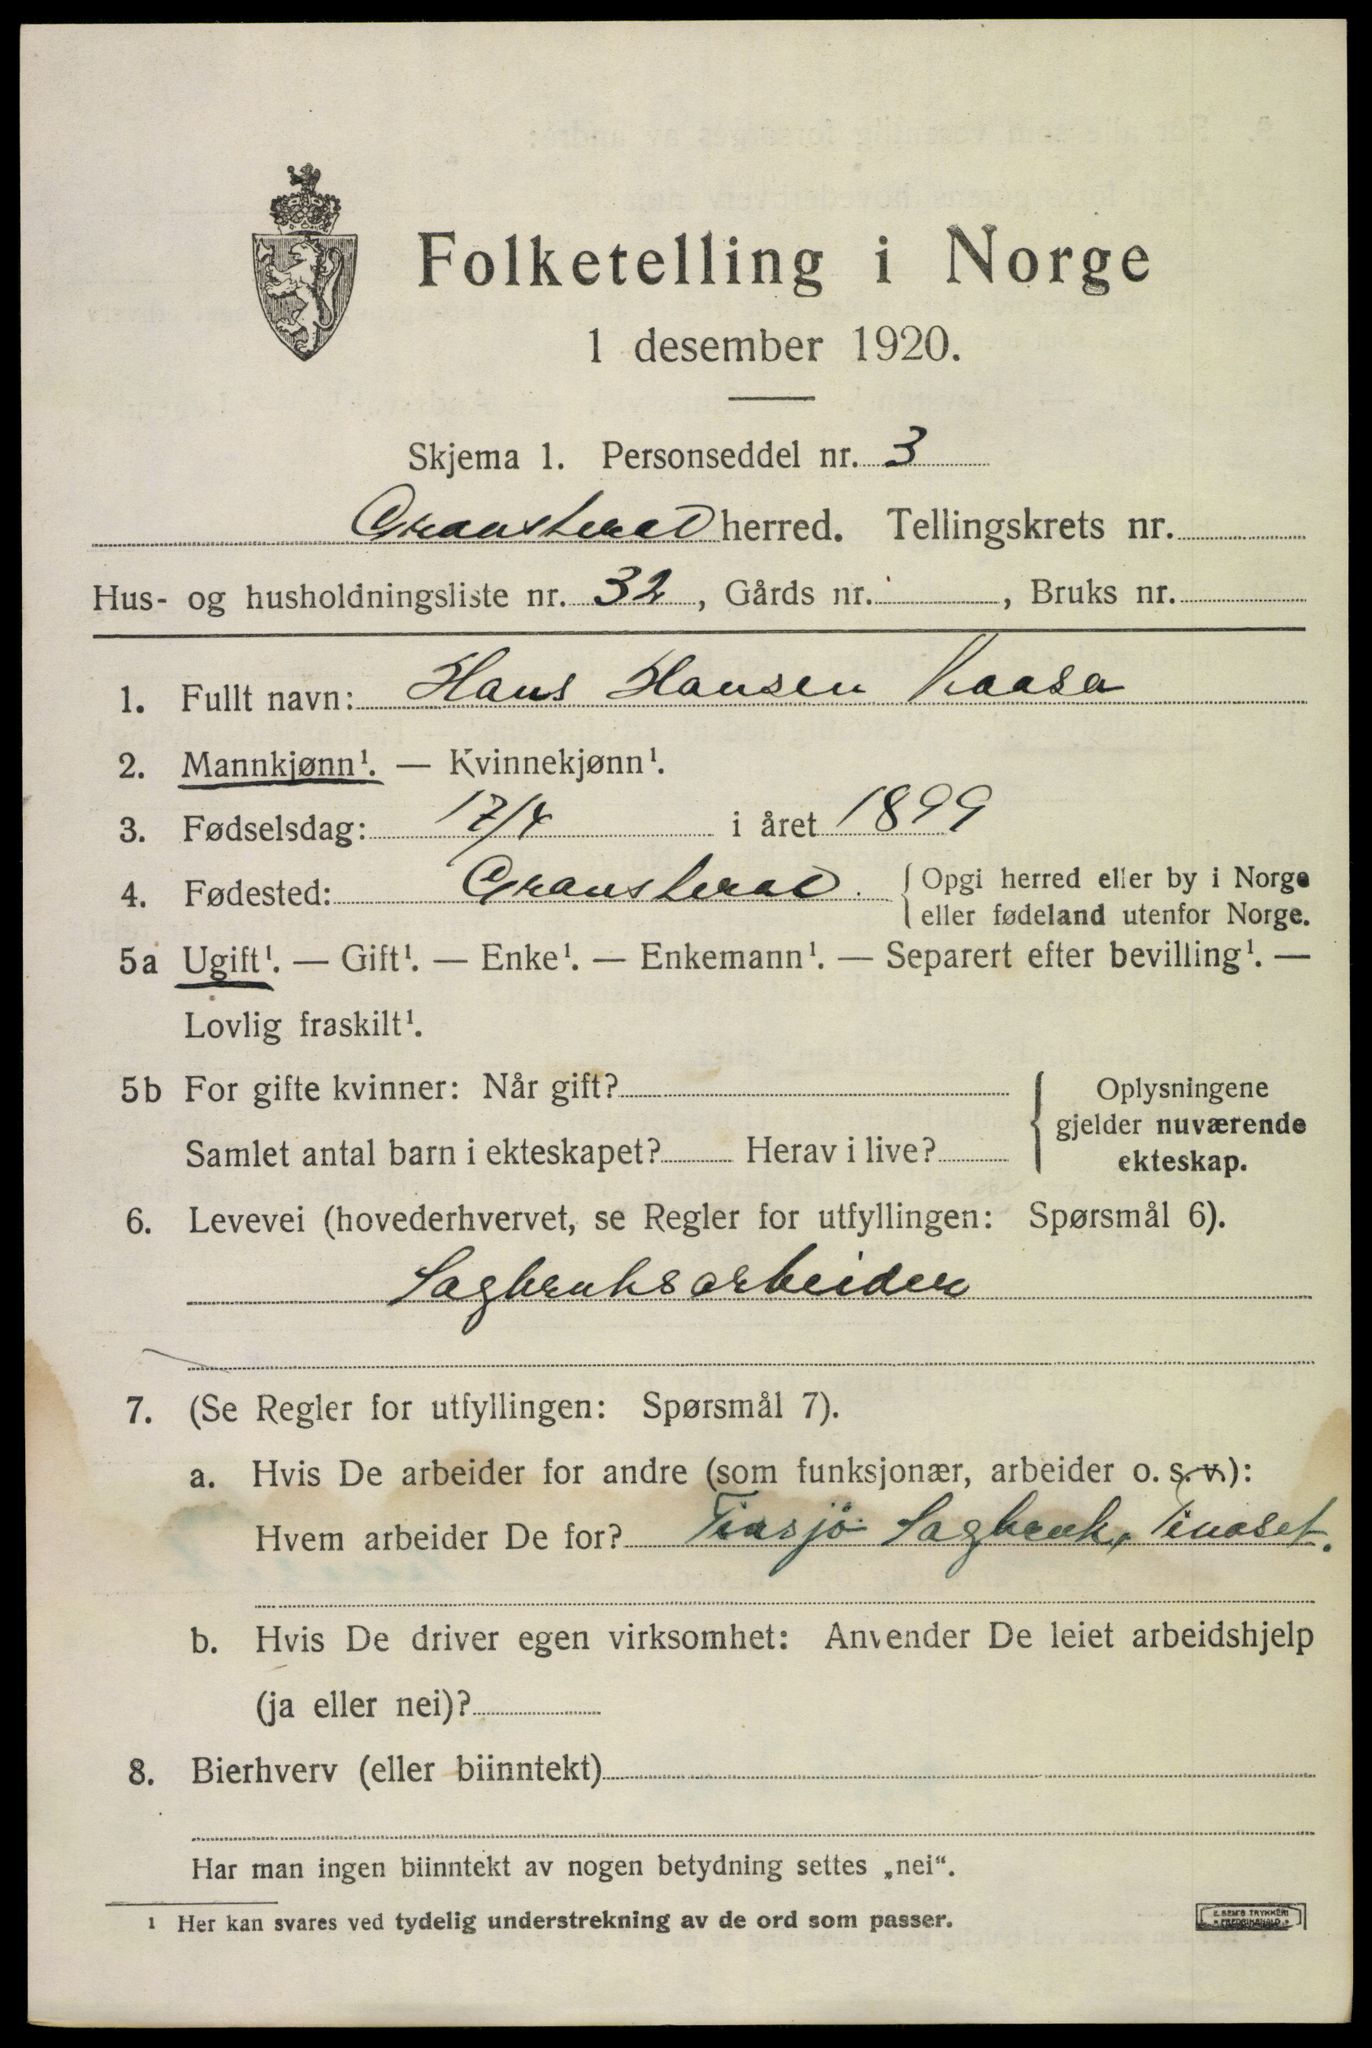 Folketelling i Norge
1 desember 1920.
Skjema 1. Personseddel nr. 3
Gransherad herred. Tellingskrets nr.
Hus- og husholdningsliste nr. 32, Gårds nr. , Bruks nr.
1. Fullt navn: Hans Hansen Kaasa
2. Mannkjønn¹. — Kvinnekjønn¹.
3. Fødselsdag: 17/4 i året 1899
4. Fødested: Gransherad. { Opgi herred eller by i Norge
eller fødeland utenfor Norge.
5a Ugift¹. — Gift¹. — Enke¹. — Enkemann¹. — Separert efter bevilling¹. —
Lovlig fraskilt¹.
5b For gifte kvinner: Når gift?
Samlet antal barn i ekteskapet? Herav i live?
{ Oplysningene
gjelder nuværende
ekteskap.
6. Levevei (hovederhvervet, se Regler for utfyllingen: Spørsmål 6).
Sagbruksarbeider
7. (Se Regler for utfyllingen: Spørsmål 7).
a. Hvis De arbeider for andre (som funksjonær, arbeider o. s. v.):
Hvem arbeider De for? Tinsjø Sagbruk, Tinoset.
b. Hvis De driver egen virksomhet: Anvender De leiet arbeidshjelp
(ja eller nei)?
8. Bierhverv (eller biinntekt)
Har man ingen biinntekt av nogen betydning settes „nei“.
¹ Her kan svares ved tydelig understrekning av de ord som passer.
E. SEM'S TRYKKERI
FREDRIKSHALD